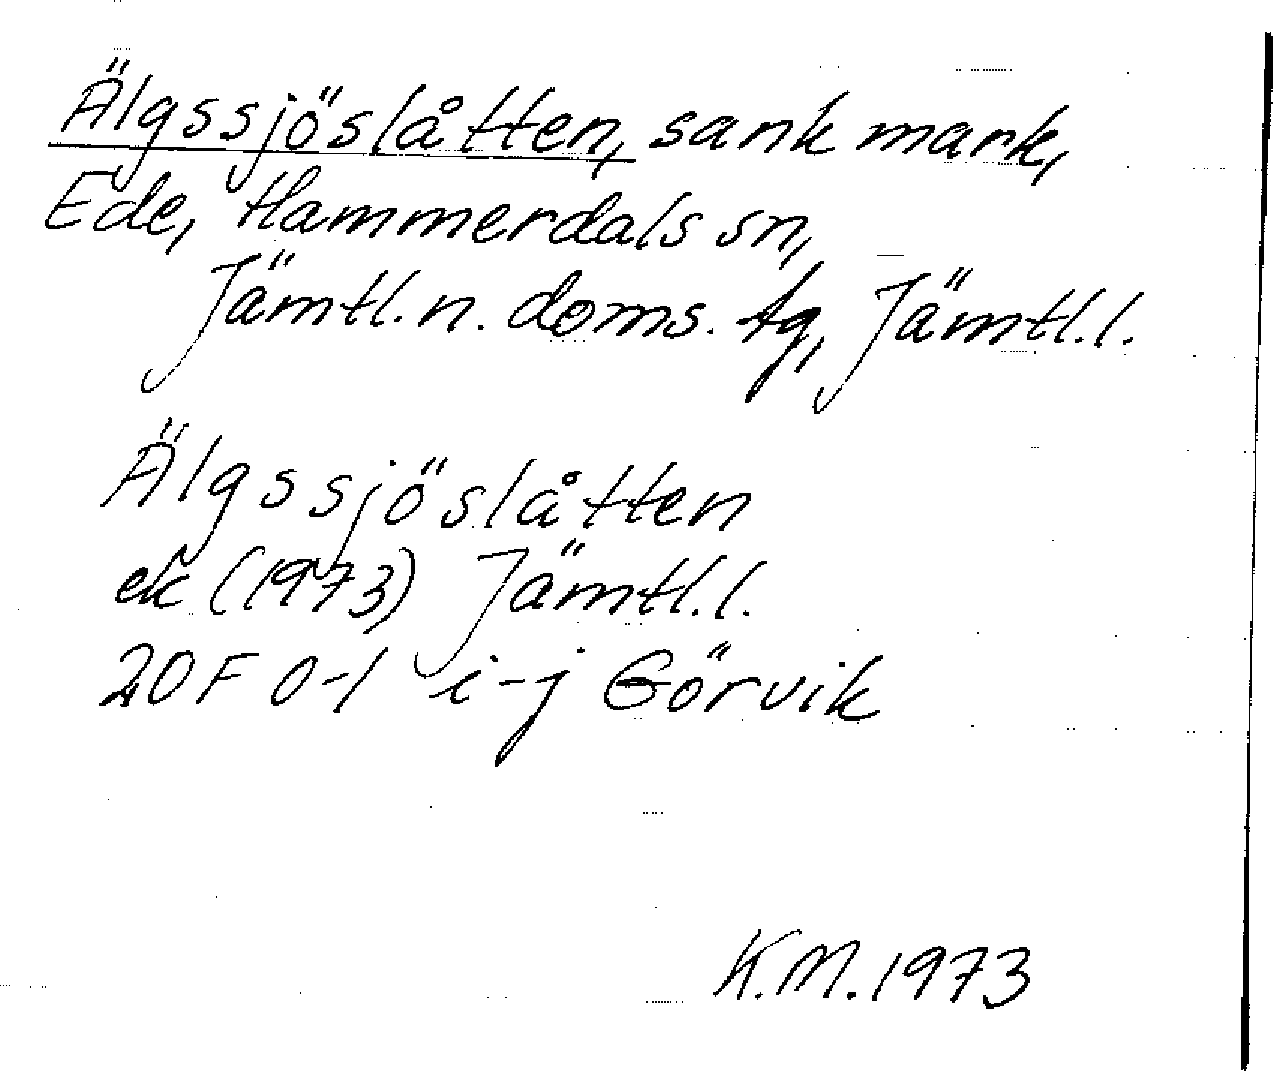 Älgssjöslåtten, sank mark,
Ede, Hammerdals sn,
Jämtl. n. doms. tg, Jämtl. l.
Älgssjöslåtten
ek (1973) Jämtl. l.
20F 0-1 i-j Görvik
K.M. 1973